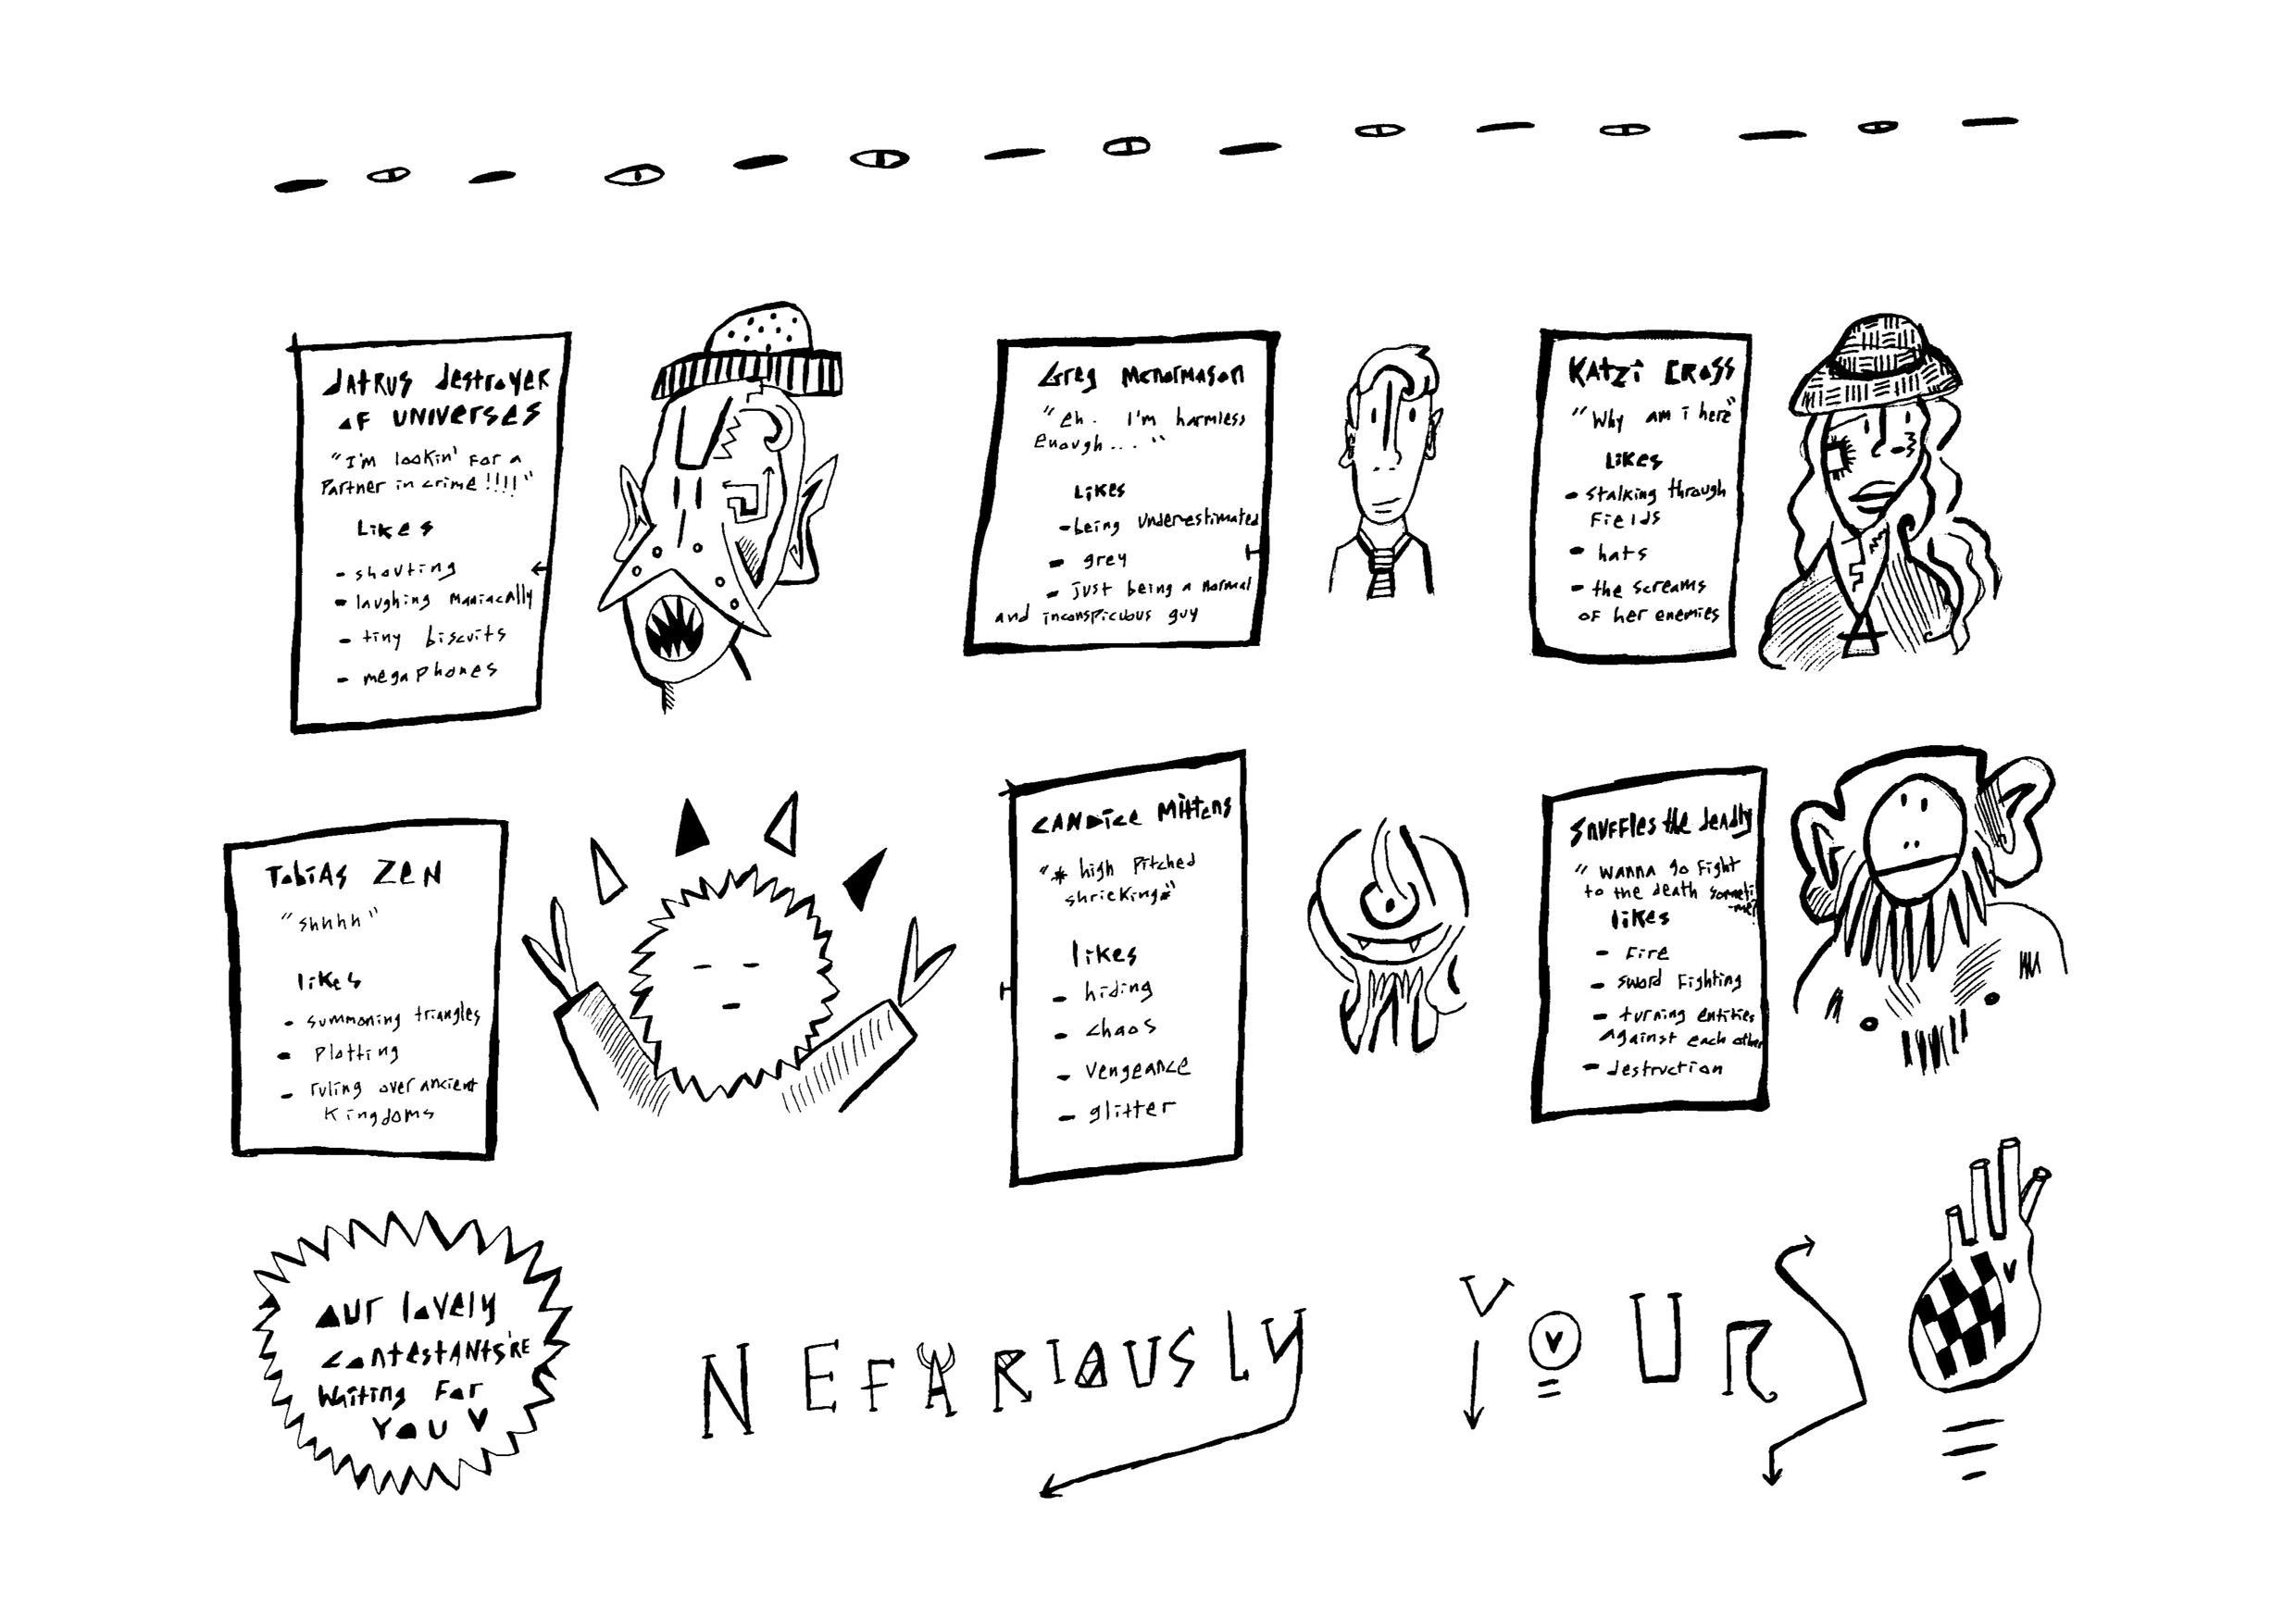 Jatrus destroyer
of universes
"I'm lookin' for a
Partner in crime!!!!"
Likes
- shouting
- laughing maniacally
- tiny biscuits
- megaphones
Greg McNormason
"eh. I'm harmless
enough..."
Likes
- being underestimated
- grey
- just being a normal
and inconspicuous guy
Katzi Cross
"Why am i here"
Likes
- stalking through
fields
- hats
- the screams
of her enemies
Tobias Zen
"shhhh"
likes
- summoning triangles
- plotting
- ruling over ancient
kingdoms
Candice Mittens
"* high pitched
shricking*"
likes
- hiding
- chaos
- vengeance
- glitter
Snuffles the deadly
"wanna go fight
to the death someti
-me?
likes
- fire
- sword fighting
- turning entities
against each other
- destruction
our lovely
contestants're
waiting for
you
NEFARIOUSLY YOURS